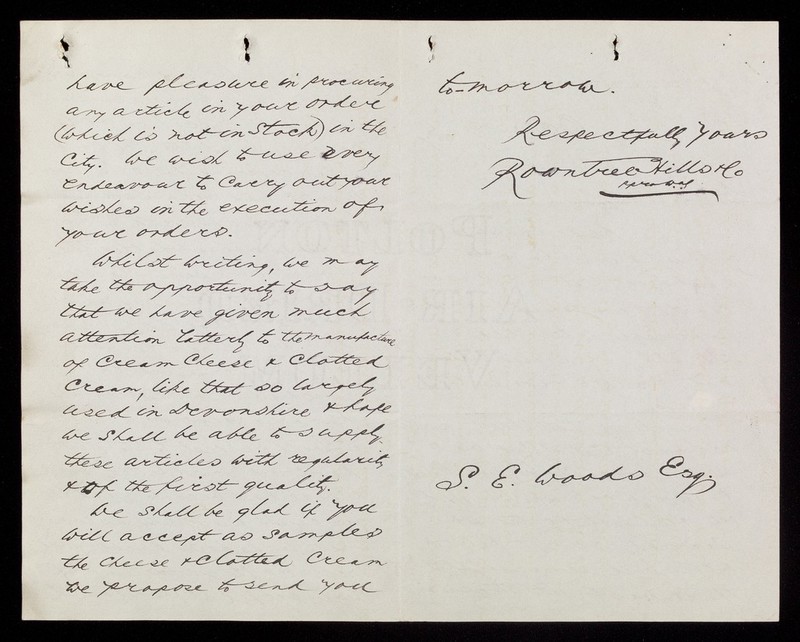 have pleasure in procuring
any article in your order
(which is not in Stock) in the
City. We wish to use every
endeavour to carry out your
wishes in the execution of
your orders.
Whilst writing, we may
take the opportunity to say
that we have given much
attention latterly to the manufacture
of Cream Cheese & Clotted
Cream, like that so largely
used in Devonshire & hope
we Shall be able to supply
these articles with regularity
& of the first quality.
We Shall be glad if you
will accept as samples
the Cheese & Clotted Cream
we propose to send you
to-morrow.
Respectfully Yours
Rowntree Hills & Co
S. E. Woods Esq.
POLTON